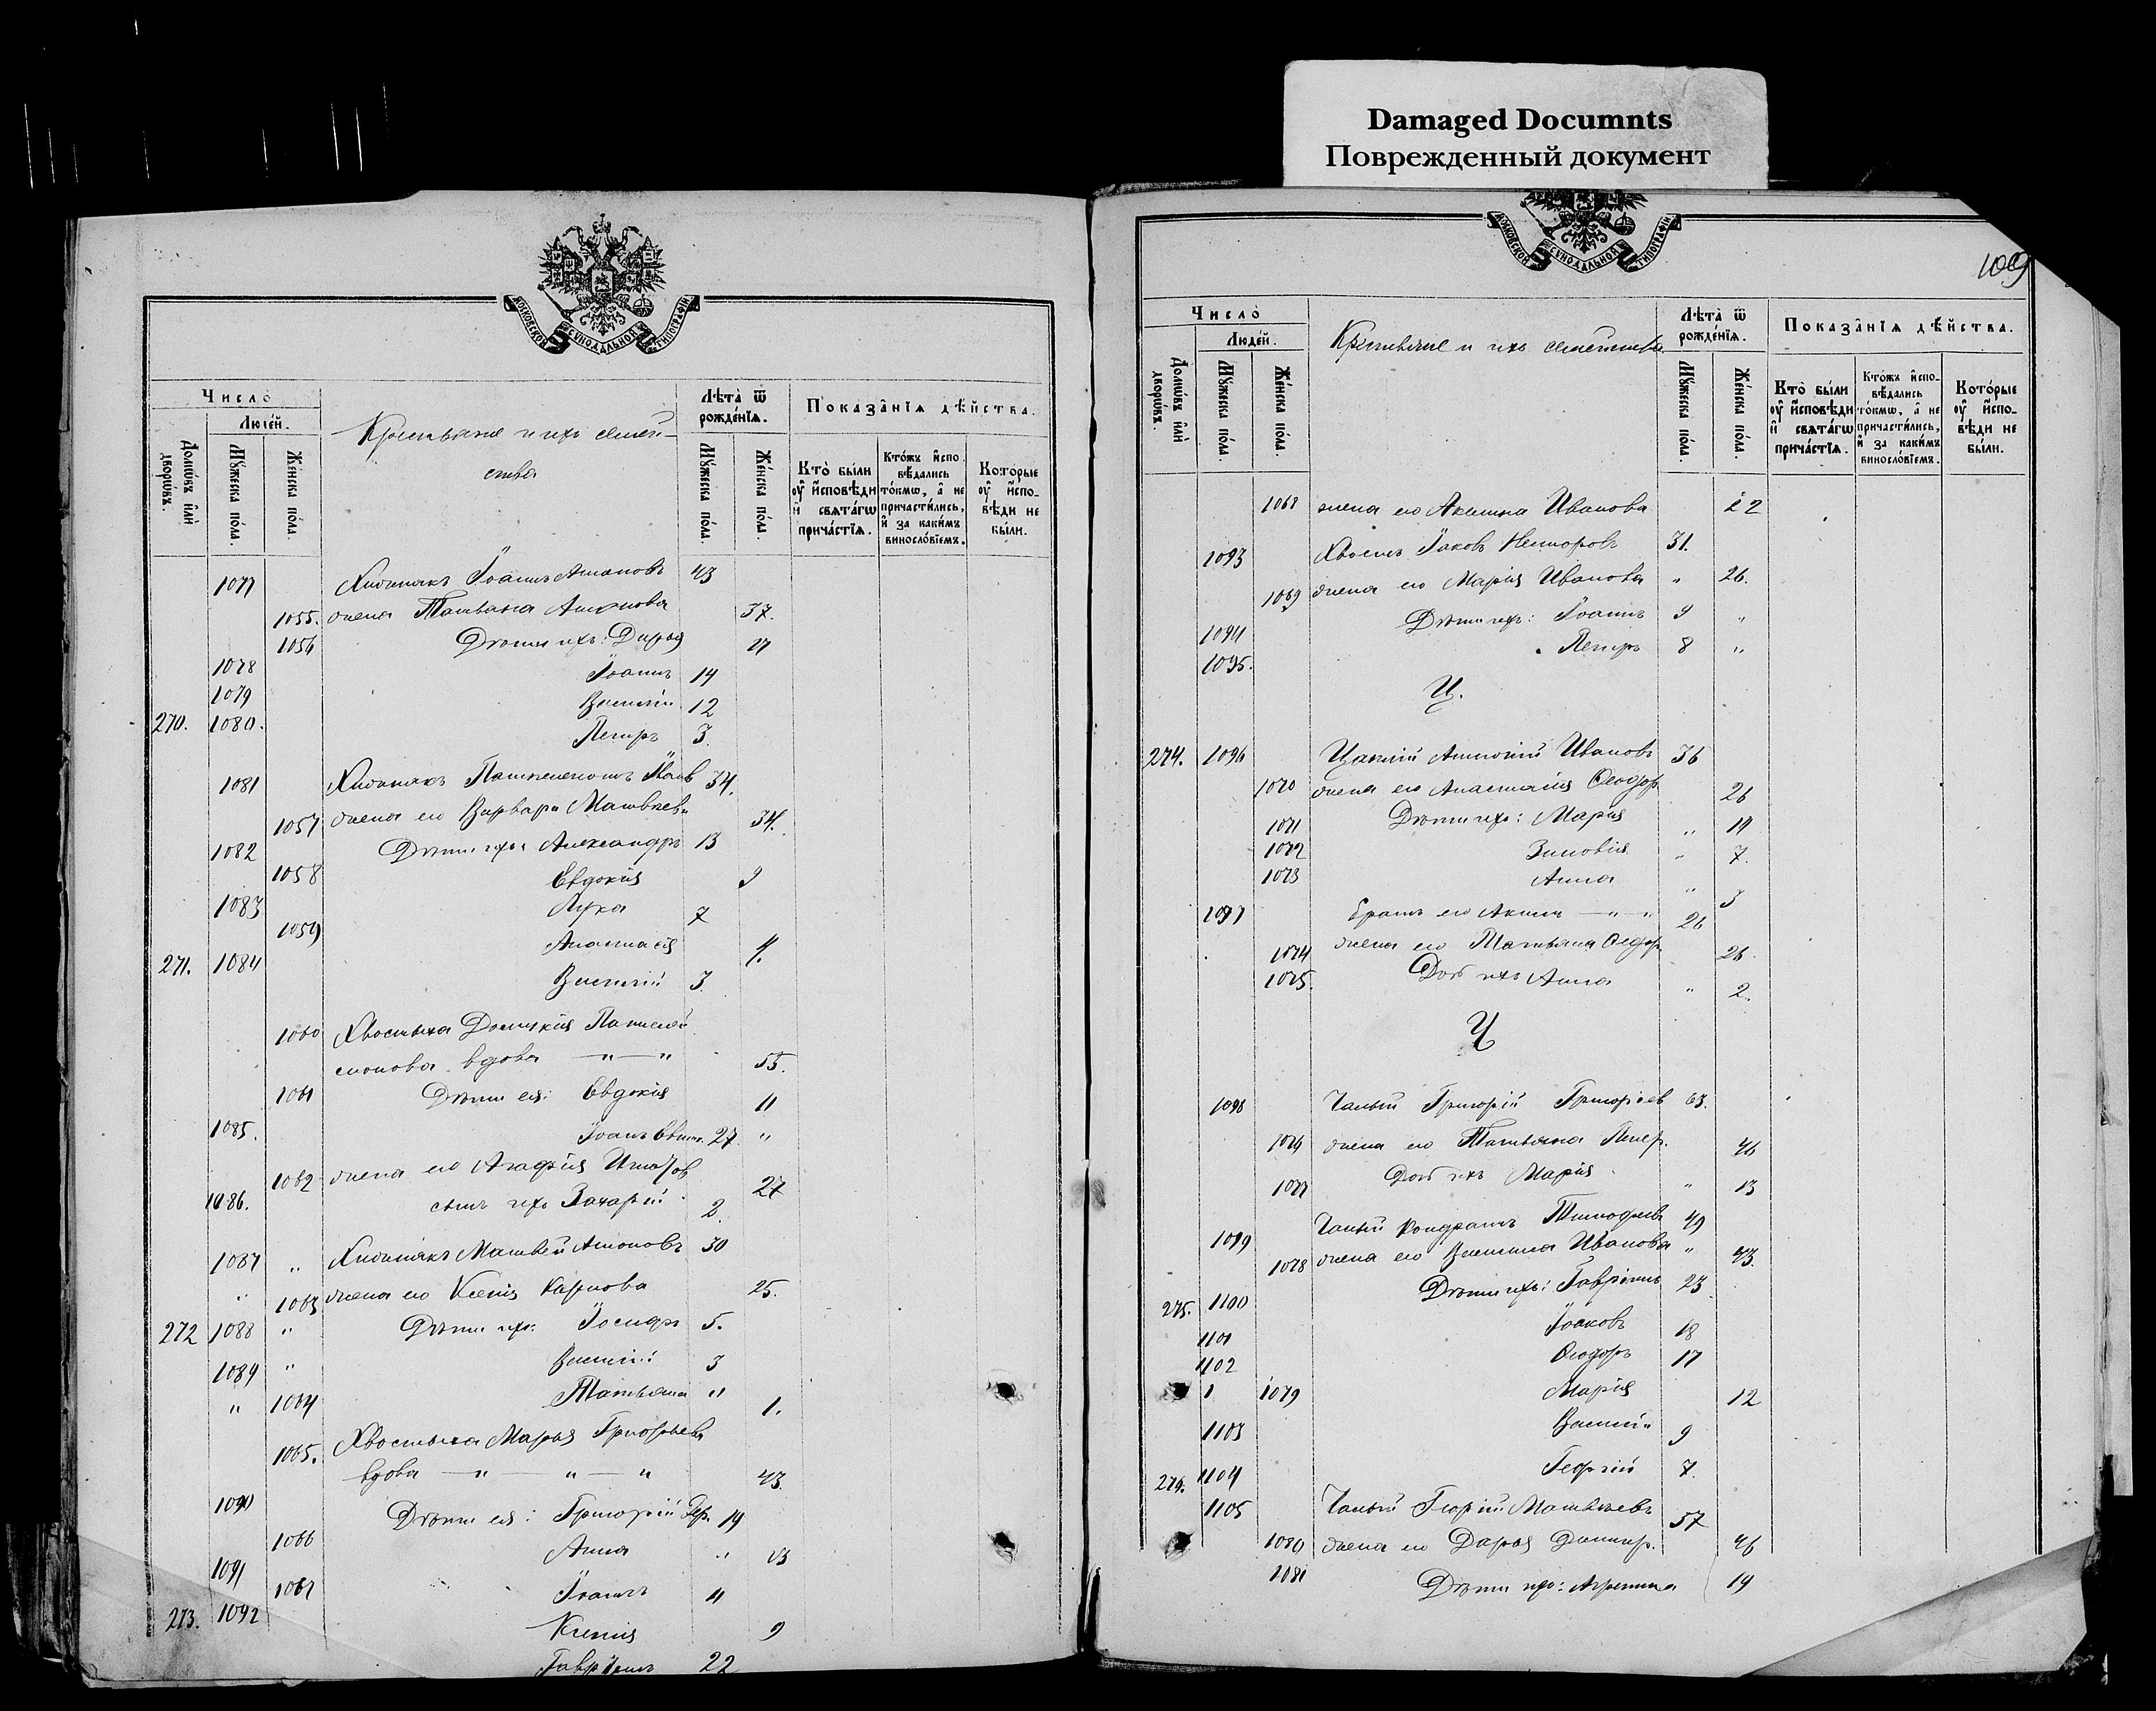 Damaged Documnts
Поврежденный документ
МОСКОВСКОЙ СѴНОДАЛЬНОЙ ТИПОГРАФІИ
Число̀
Людей.
Домѡвъ и҆лѝ дворѡвъ.
Мꙋжеска по́ла.
Же́нска по́ла.
Крестьяне и ихъ семей-
ства
Лѣта̀ ѿ рожде́нїѧ.
Мꙋжеска по́ла.
Же́нска по́ла.
Показа̂нїѧ дѣ́йства.
Кто̀ бы́ли ᲂу҆ и҆сповѣди и҆ свѧта́гѡ прича́стїѧ.
Кто́жъ и҆спо-вѣдались то́кмѡ, а҆ не причасти́лись, и҆ за каки́мъ винослові́емъ.
Кото́рые ᲂу҆ и҆спо-вѣди не бы́ли.
1077 Іоаннъ 43
1055. жена Татьяна 37.
1056 Дѣти ихъ: Дарья 17
1078 Іоаннъ 14
1079 Василій 12
270. 1080. Петръ 3.
1081 34.
1057 жена его Варвара Матвѣев. 34.
1082 Дѣти ихъ: Александръ 13
1058 Евдокія 9
1083 Лука 7
1059 Анастасія 4.
271. 1084 Василій 3.
1060 Хвостыха
вдова — " — " 55.
1061 Дѣти ея: Евдокія 11
1085. Іоаннъ 27. "
1062 жена его Агафія 27
1086. сынъ ихъ Захарій 2.
1087 " Матвѣй 30
" 1063 жена его Ксенія Карпова 25.
272 1088 " Дѣти ихъ: Іосифъ 5.
1089 " Василій 3
" 1064 Татьяна " 1.
1065. Хвостыха Марья Григорьева
вдова — " — " — " 43.
1090 Дѣти ея: Григорій 19
1066 Анна " 13
1091 1067 Іоаннъ 11
273. 1092 Ксенія 9
Гавріилъ 22
МОСКОВСКОЙ СѴНОДАЛЬНОЙ ТИПОГРАФІИ
109
Число̀
Людей.
Домѡвъ и҆лѝ дворѡвъ.
Мꙋжеска по́ла.
Же́нска по́ла.
Крестьяне и ихъ семейства
Лѣта̀ ѿ рожде́нїѧ.
Мꙋжеска по́ла.
Же́нска по́ла.
Показа̂нїѧ дѣ́йства.
Кто̀ бы́ли ᲂу҆ и҆сповѣди и҆ свѧта́гѡ прича́стїѧ.
Кто́жъ и҆спо-вѣдались то́кмѡ, а҆ не причасти́лись, и҆ за каки́мъ винослові́емъ.
Кото́рые ᲂу҆ и҆спо-вѣди не бы́ли.
1068 жена его Иванова 22
1093 Хвостъ Іаковъ Несторовъ 31.
1069 жена его Марія Иванова " 26.
1094 Дѣти ихъ: Іоаннъ 9 "
1095. Петръ 8 "
Ц.
274. 1096 Антоній Ивановъ 36
1070 жена его Анастасія Ѳеодор. 26
1071 Дѣти ихъ: Марія " 14
1072 Зиновія " 7.
1073 Анна " 3
1097 братъ его — " — " 26
1074 жена его Татьяна Ѳеодор. 26.
1075. Дочь ихъ Анна " 2.
Ч
1098 Чалый Григорій Григоріевъ 63.
1076 жена его Татьяна Петр. 46
1077 Дочь ихъ Марія " 13
1099 Чалый Кондратъ Тимофеевъ 49
1078 жена его Иванова " 43.
275. 1100 Дѣти ихъ: Гавріилъ 23.
1101 Іаковъ 18
1102 Ѳеодоръ 17
1079 Марія 12
1103 Василій 9
276. 1104 Георгій 7.
1105 Чалый Георгій Матвѣевъ 57
1080 жена его Дарья 46
1081 Дѣти ихъ: Агрепина 19